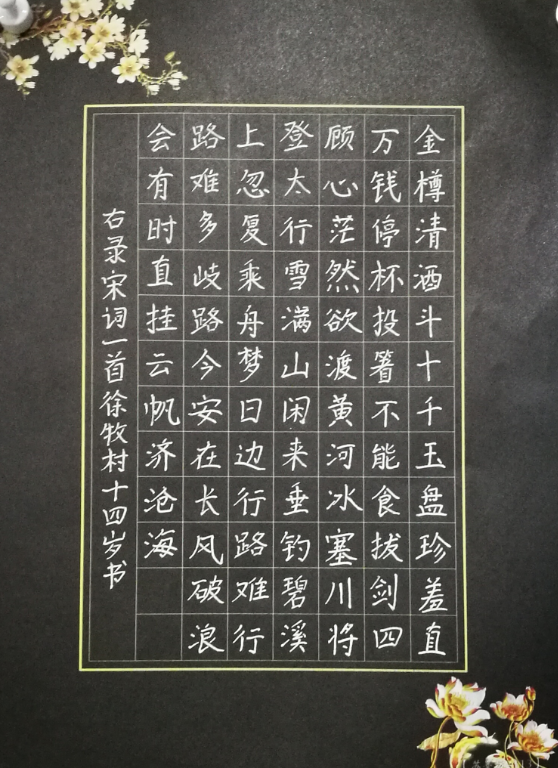 金樽清酒斗十千玉盘珍羞直
万钱停杯投箸不能食拔剑四
顾心茫然欲渡黄河冰塞川将
登太行雪满山闲来垂钓碧溪
上忽复乘舟梦日边行路难行
路难多岐路今安在长风破浪
会有时直挂云帆济沧海
右录宋词一首徐牧村十四岁书